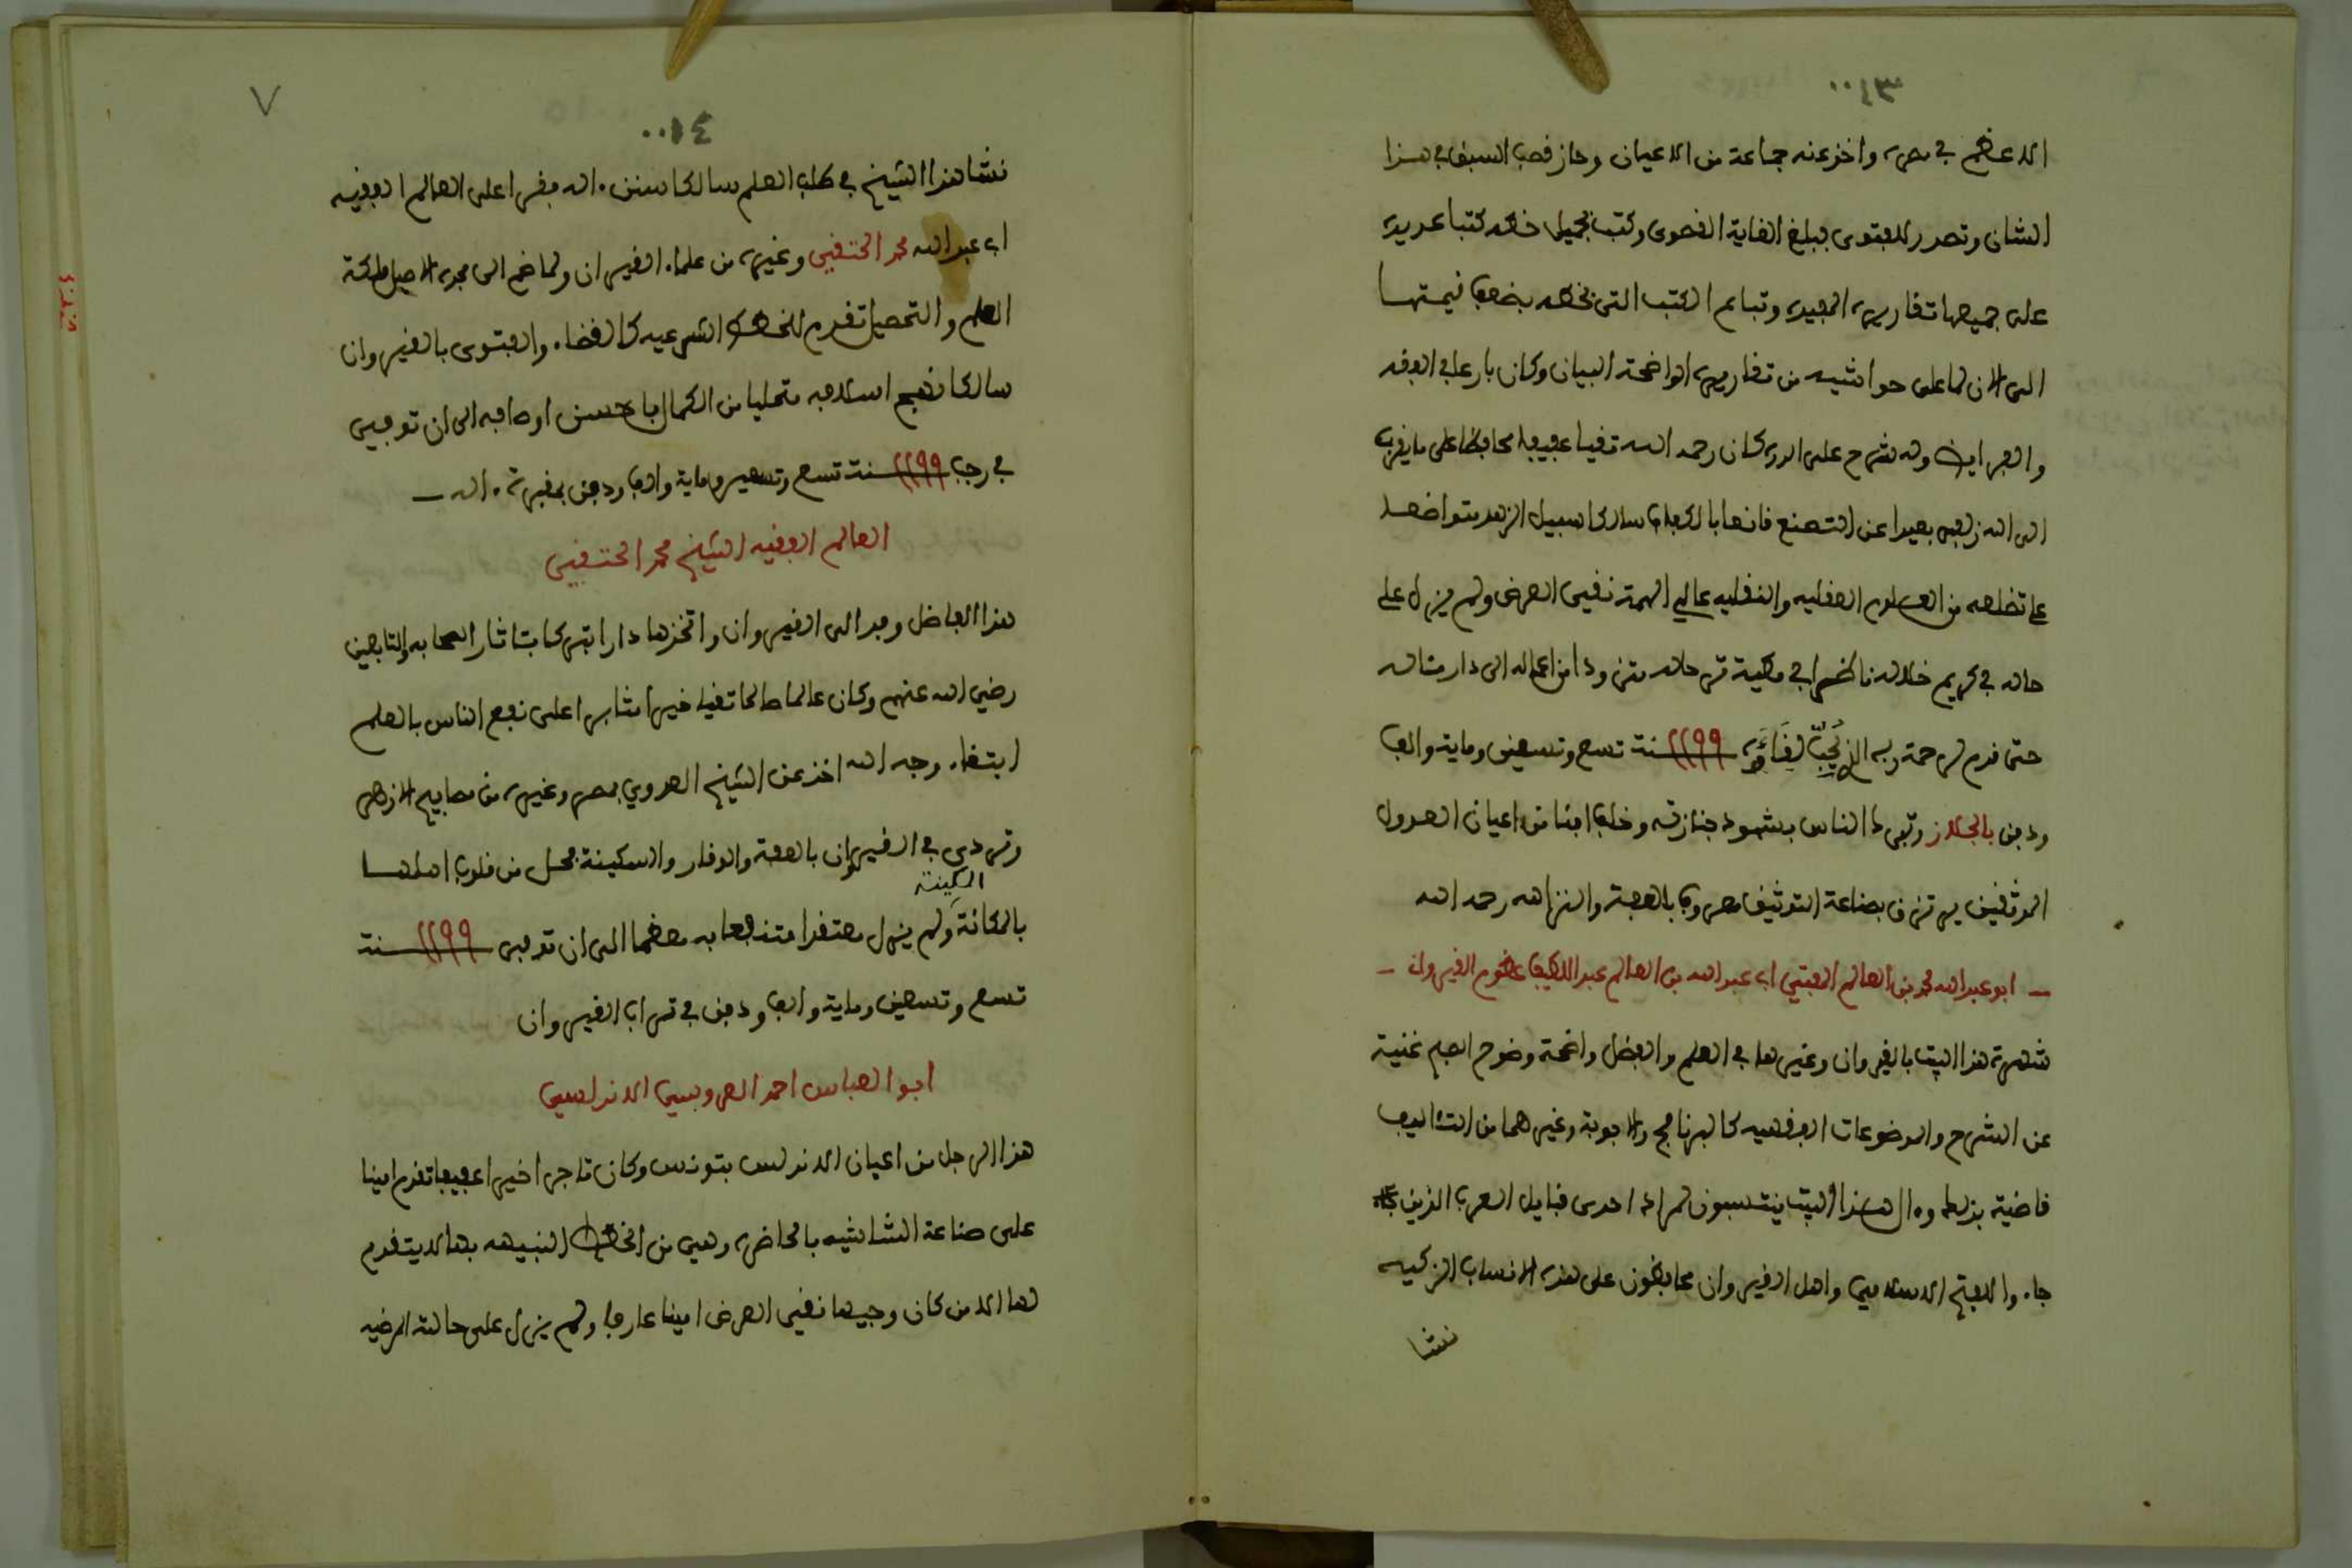 ٠٠١٣
الاعظم في عصره واخذ عنه جماعة من الاعيان وحاز قصب السبق في هذا
الشان وتصدر للفتوى فبلغ الغاية القصوى وكتب بجميل خطه كتبا عديده
على جميعها تقاريره المفيده وتباع الكتب التي بخطه بضعف قيمتها
الى الان لما على حواشيه من تقاريره الواضحة البيان وكان بارعا في الفقه
والفرايض وله شرح على الدره كان رحمه الله تقيا عفيفا محافظا على ما يقرب
الى الله زلفى بعيدا عن التصنع قانعا بالكفاف سالكا سبيل الزهد متواضعا
على تضلعه من العلوم العقليه والنقليه عالي الهمة نقي العرض ولم يزل على
حاله في كريم خلاله ناظرا في مطية ترحاله متزودا من اعماله الى دار مئاله
حتى قدم لرحمة ربه الذي يحب لقاءه سنة ١١٩٩ تسع وتسعين وماية والف
ودفن بالجلاز وتبرك الناس بشهود جنازته وخلف ابنا من اعيان العدول
الموثقين يرتزق بصناعة التوثيق معروف بالعفة والنزاهه رحمه الله
ابو عبد الله محمد بن العالم المفتي ابي عبد الله بن العالم عبد اللطيف عظوم القيرواني
شهرة هذا البيت بالقيروان وغيرها في العلم والفضل واضحة وضوح الفجر غنية
عن الشرح والموضوعات الفقهيه كالبرنامج والاجوبة وغيرهما من التئاليف
قاضية بذلك وءال هذا البيت ينتسبون لمراد احدى قبايل العرب الذين
جاءوا للفتح الاسلامي واهل القيروان محافظون على هذه الانساب الزكيه
نشا
٧
٠٠١٤
نشا هذا الشيخ في طلب العلم سالكا سنن ءاله فقرا على العالم الفقيه
ابي عبد الله محمد الخنفي وغيره من علماء القيروان ولما ضم الى مجده الاصيل ملكة
العلم والتحصيل تقدم للخطط الشرعيه كالقضاء والفتوى بالقيروان
سالكا نهج اسلافه متحليا من الكمال باحسن اوصافه الى ان توفي
في رجب سنة ١١٩٩ تسع وتسعين وماية والف ودفن بمقبرة ءاله
العالم الفقيه الشيخ محمد الخنفي
هذا الفاضل وفد الى القيروان واتخذها دارا تبركا بئاثار الصحابه والتابعين
رضي الله عنهم وكان عالما صالحا تقيا خيرا مثابرا على نفع الناس بالعلم
ابتغاء وجه الله اخذ عن الشيخ العدوي بمصر وغيره من مصابيح الازهر
وتردى في القيروان بالعفة والوقار والسكينة فحل من قلوب اهلها
المكينة
بالمكانة ولم يزل معتقدا منتفعا به معظما الى ان توفي سنة ١١٩٩
تسع وتسعين وماية والف ودفن في تراب القيروان
ابو العباس احمد العروسي الاندلسي
هذا الرجل من اعيان الاندلس بتونس وكان تاجرا خيرا عفيفا تقدم امينا
على صناعة الشاشيه بالحاضره وهي من الخطط النبيهه بها لا يتقدم
لها الا من كان وجيها نقي العرض امينا عارفا ولم يزل على حالته المرضيه